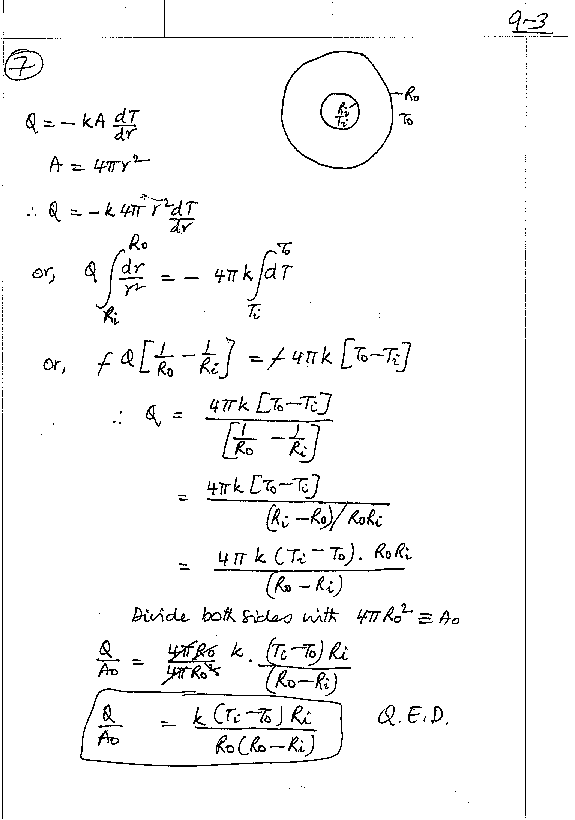 9-3
7
Ri
Ti
Ro
To
Q = - kA dT/dr
A = 4πr²
∴ Q = -k 4π r² dT/dr
or, Q ∫_{Ri}^{Ro} dr/r² = - 4πk ∫_{Ti}^{To} dT
or, -Q [1/Ro - 1/Ri] = -4πk [To-Ti]
∴ Q = 4πk [To-Ti] / [1/Ro - 1/Ri]
= 4πk [To-Ti] / (Ri-Ro)/RoRi
= 4πk (Ti-To). RoRi / (Ro-Ri)
Divide both sides with 4πRo² ≡ Ao
Q/Ao = 4πRo/4πRo² k. (Ti-To) Ri / (Ro-Ri)
Q/Ao = k (Ti-To) Ri / Ro(Ro-Ri) Q.E.D.